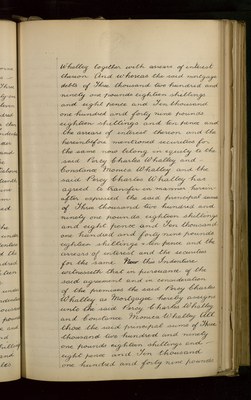 Whatley together with arrears of interest
thereon And Whereas the said mortgage
debts of Three thousand two hundred and
ninety one pounds eighteen shillings
and eight pence and Ten thousand
one hundred and forty nine pounds
eighteen shillings and ten pence and
the arrears of interest thereon and the
hereinbefore mentioned securities for
the same now belong in equity to the
said Percy Charles Whatley and
Constance Frances Whatley and the
said Percy Charles Whatley has
agreed to transfer in manner herein-
after expressed the said principal sums
of Three thousand two hundred and
ninety one pounds eighteen shillings
and eight pence and Ten thousand
one hundred and forty nine pounds
eighteen shillings & ten pence and the
arrears of interest and the securities
for the same Now this Indenture
witnesseth that in pursuance of the
said agreement and in consideration
of the premises the said Percy Charles
Whatley as Mortgagee hereby assigns
unto the said Percy Charles Whatley
and Constance Frances Whatley All
those the said principal sums of Three
thousand two hundred and ninety
one pounds eighteen shillings and
eight pence and Ten thousand
one hundred and forty nine pounds